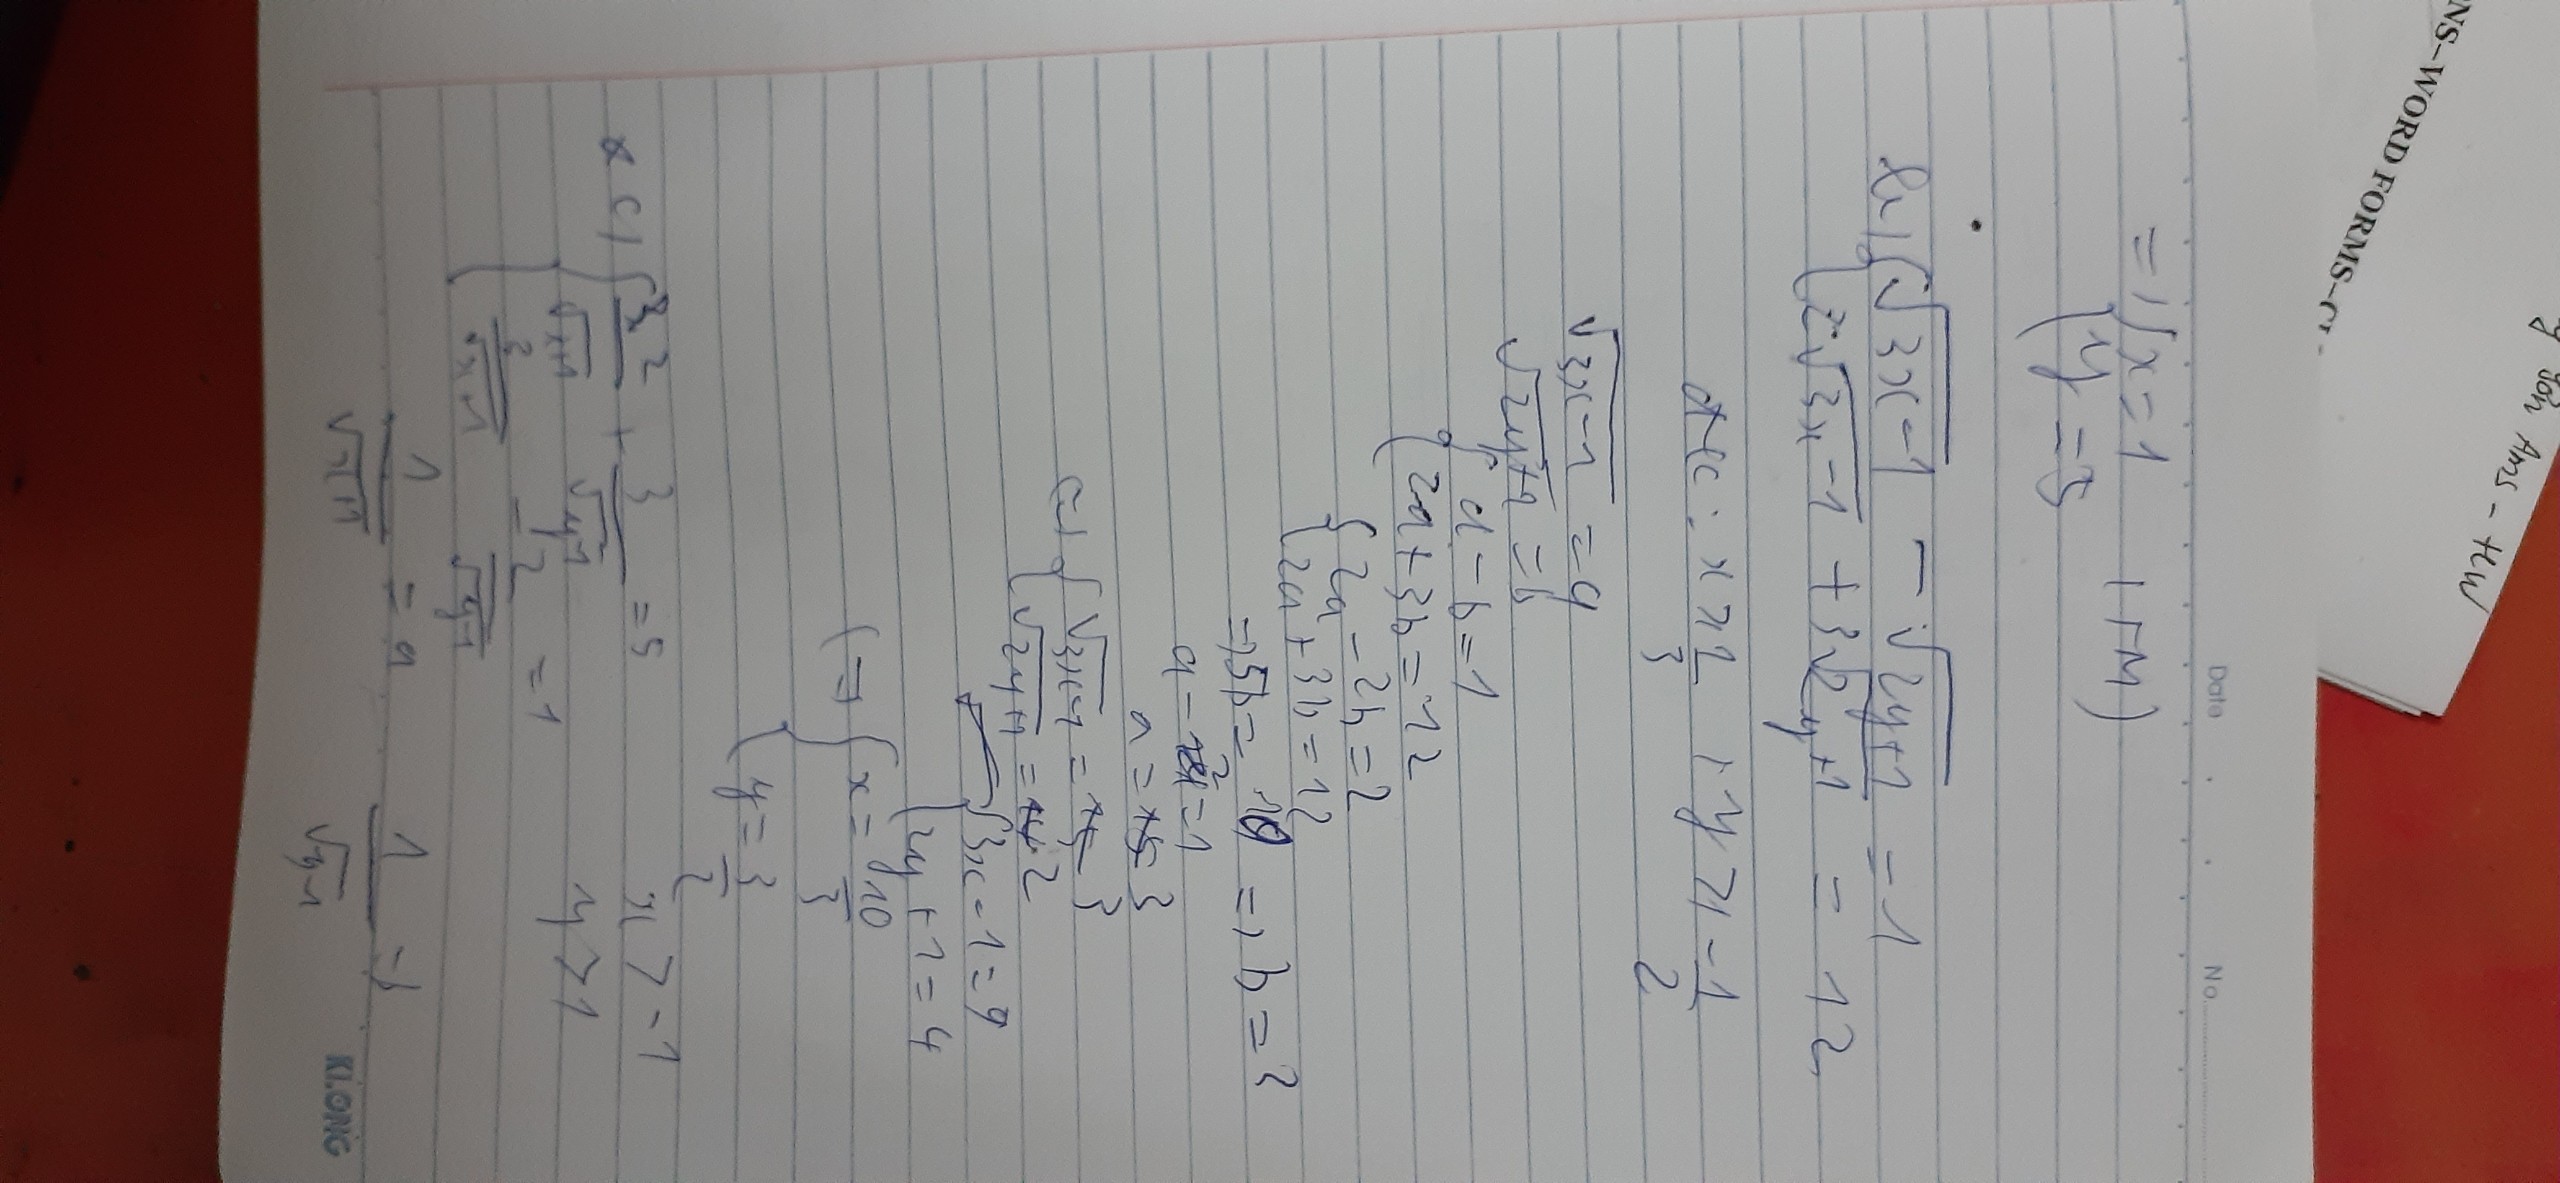 NS-WORD FORMS-
Ans - HW
Date No.
=) { x = 1
{ y = 5 (TM)
b) { √3x-1 - √2y+1 = 1
{ 2√3x-1 + 3√2y+1 = 12
đk: x ≥ 1/3 , y ≥ -1/2
√3x-1 = a
√2y+1 = b
{ a - b = 1
{ 2a + 3b = 12
{ 2a - 2b = 2
{ 2a + 3b = 12
=) 5b = 10 =) b = 2
a - 2 = 1
a = 3
(=) { √3x-1 = 3
{ √2y+1 = 2
{ 3x - 1 = 9
{ 2y + 1 = 4
(=) { x = 10/3
{ y = 3/2
c) { 2/√x+1 + 3/√y-1 = 5 x > -1
{ 3/√x+1 - 2/√y-1 = 1 y > 1
1/√x+1 = a 1/√y-1 = b
KLONG